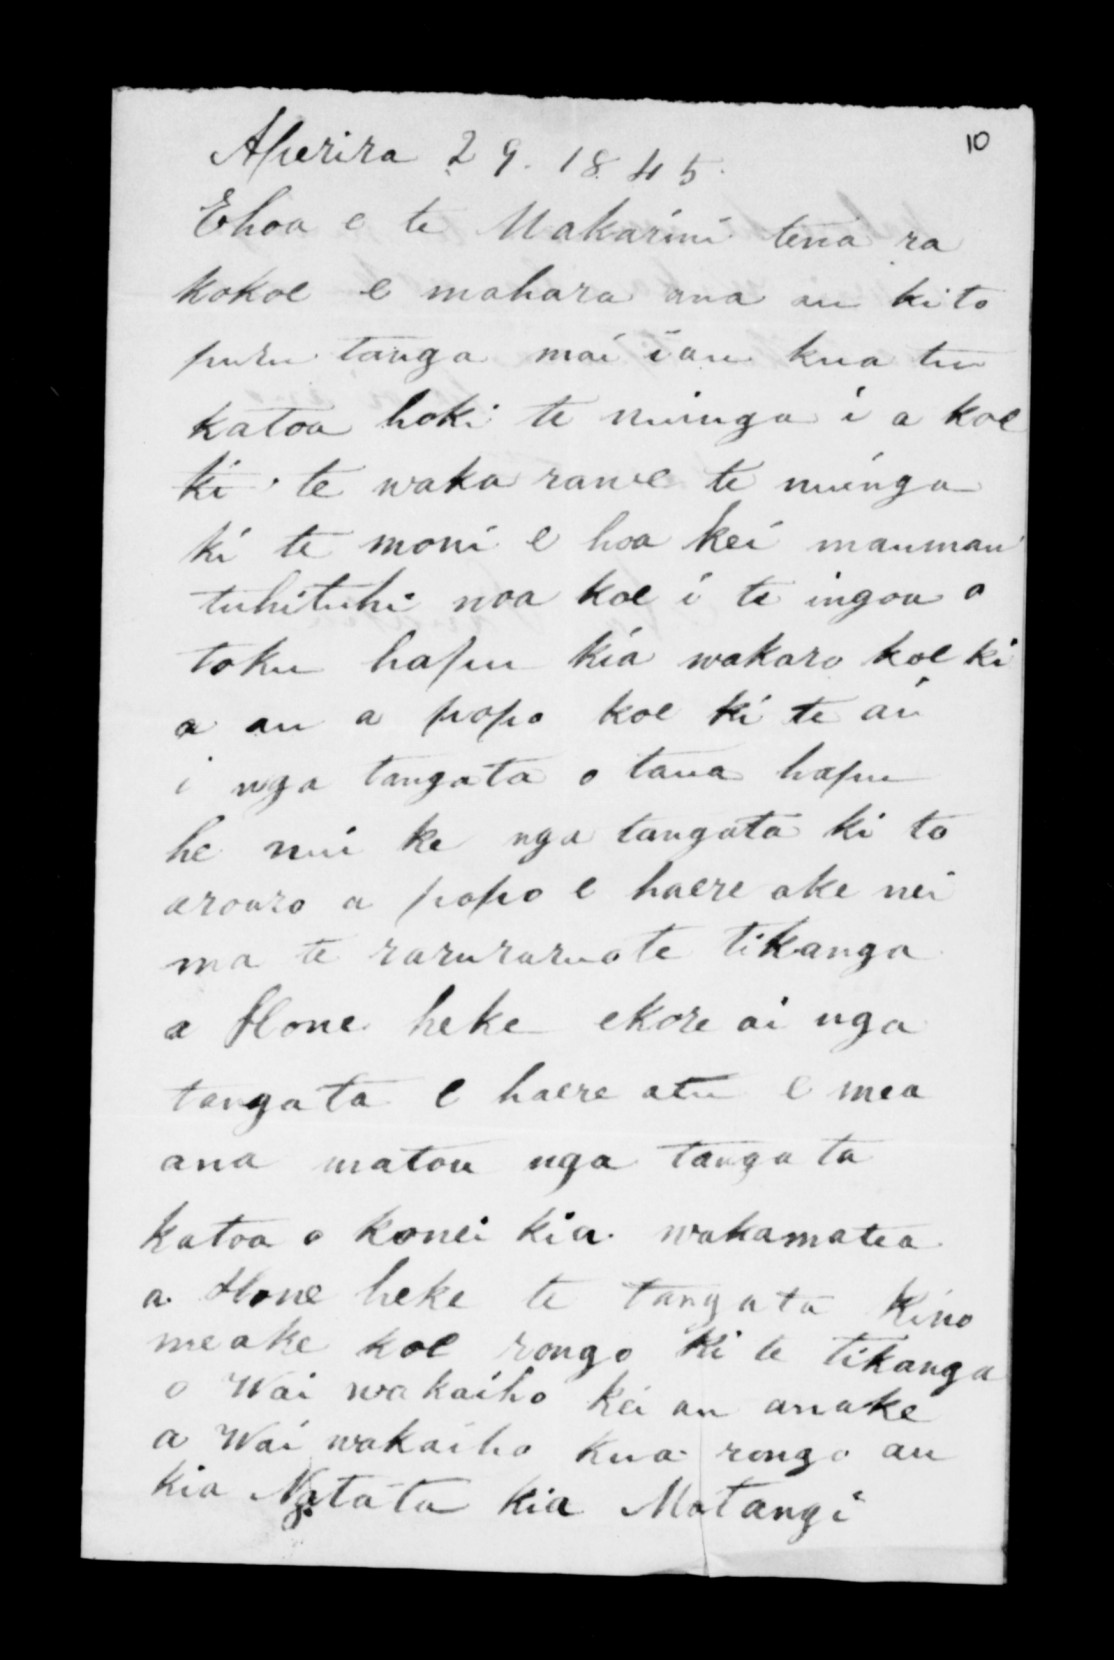 10
Aperira 29. 1845.
Ehoa e te Makarini tena ra
kokoe e mahara ana au kito
puru tanga mai iau kua tu
katoa hoki te nuinga i a koe
ki te waka rawe te nuinga
ki te moni e hoa kei maumau
tuhituhi noa koe i te ingoa o
toku hapu kia wakaro koe ki
a au a popo koe ki te ai
i nga tangata o taua hapu
he nui ke nga tangata ki to
aroaro a popo e haere ake nei
ma te raruraruote tikanga
a Hone heke ekore ai nga
tangata e haere atu e mea
ana matou nga tangata
katoa o konei kia wakamatea
a Hone heke te tangata kino
meake koe rongo ki te tikanga
o Wai wakaiho kei au anake
a Wai wakaiho kua rongo au
kia Ngtata kia Matangi